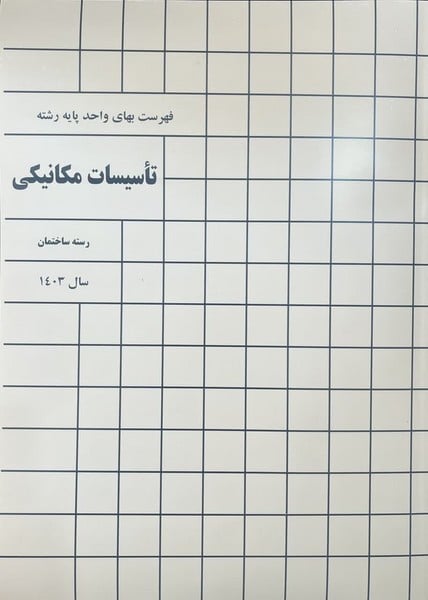 فهرست بهای واحد پایه رشته
تأسیسات مکانیکی
رسته ساختمان
سال ۱٤۰۳